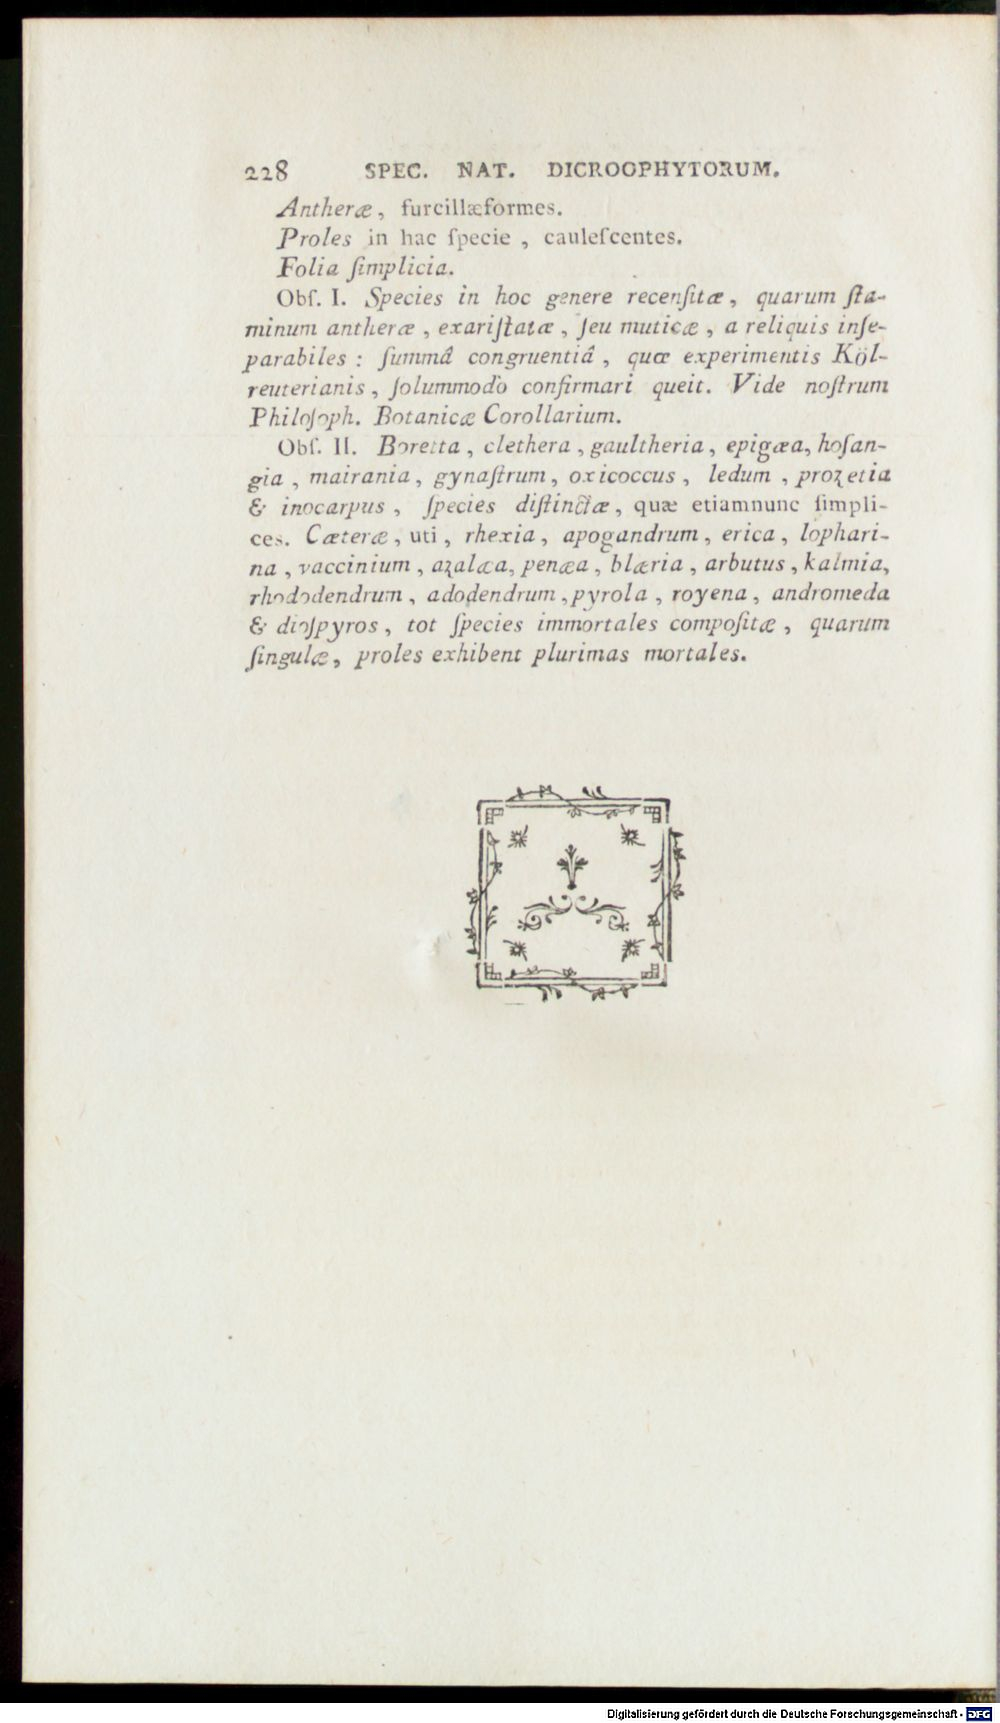 228 SPEC. NAT. DICROOPHYTORUM.
Antheræ, furcillæformes.
Proles in hac ſpecie, cauleſcentes.
Folia ſimplicia.
Obſ. I. Species in hoc genere recenſitæ, quarum ſta-
minum antheræ, exariſtatæ, ſeu muticæ, a reliquis inſe-
parabiles : ſummâ congruentiâ, quæ experimentis Köl-
reuterianis, ſolummodò confirmari queit. Vide noſtrum
Philoſoph. Botanicæ Corollarium.
Obſ. II. Boretta, clethera, gaultheria, epigæa, hoſan-
gia, mairania, gynaſtrum, oxicoccus, ledum, prozetia
& inocarpus, ſpecies diſtinctæ, quæ etiamnunc ſimpli-
ces. Cæteræ, uti, rhexia, apogandrum, erica, lophari-
na, vaccinium, azalæa, penæa, blæria, arbutus, kalmia,
rhododendrum, adodendrum, pyrola, royena, andromeda
& dioſpyros, tot ſpecies immortales compoſitæ, quarum
ſingulæ, proles exhibent plurimas mortales.
Digitalisierung gefördert durch die Deutsche Forschungsgemeinschaft - DFG